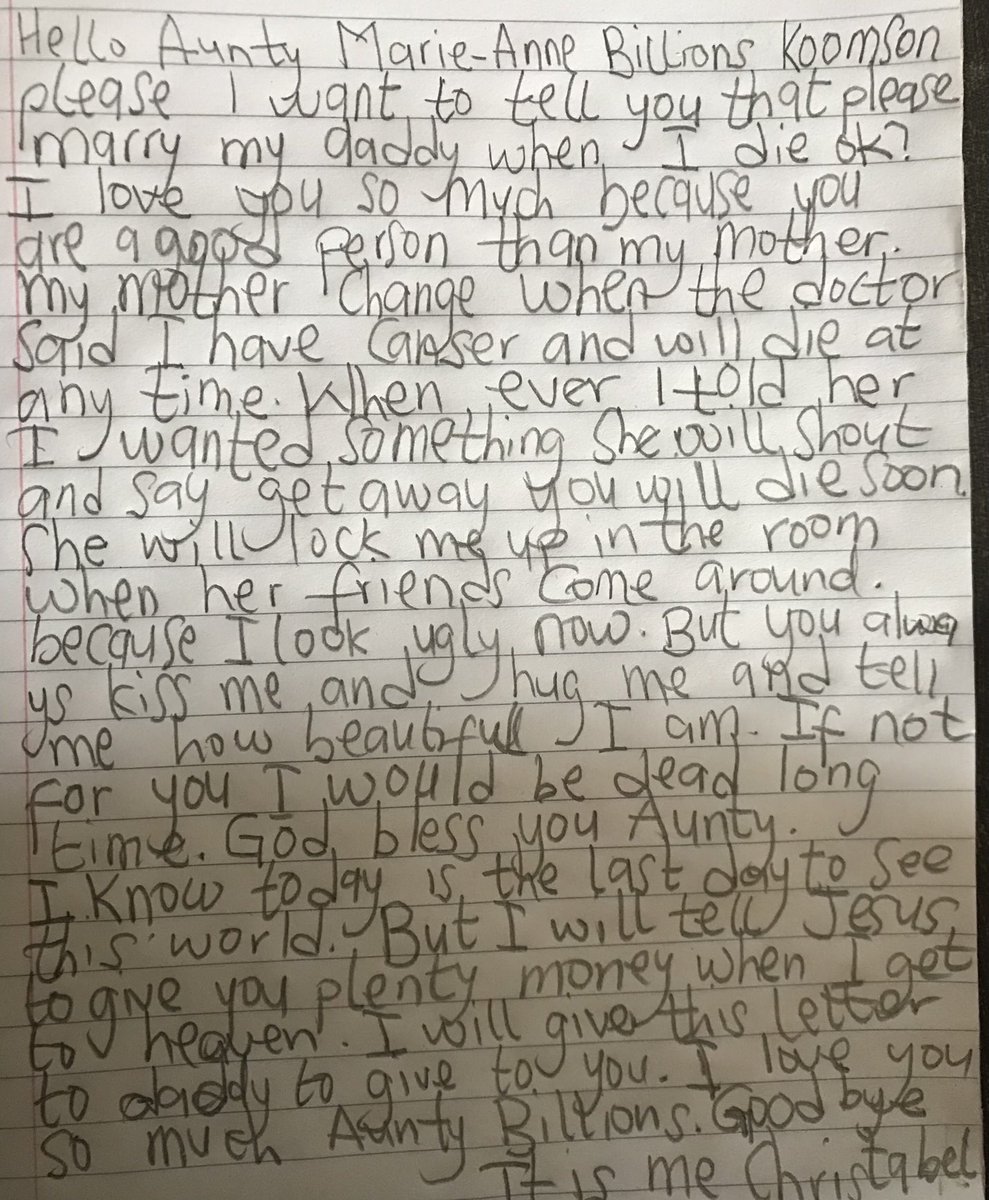 Hello Aunty Marie-Anne Billions Koomson
please I want to tell you that please
marry my daddy when I die ok?
I love you so much because you
are a good person than my mother.
my mother change when the doctor
said I have Canser and will die at
any time. When ever I told her
I wanted something she will shout
and say get away you will die soon.
She will lock me up in the room
when her friends come around.
because I look ugly now. But you alway
ys kiss me and hug me and tell
me how beautiful I am. If not
for you I would be dead long
time. God bless you Aunty.
I know today is the last day to see
this world. But I will tell Jesus
to give you plenty money when I get
to heaven. I will give this letter
to daddy to give to you. I love you
so much Aunty Billions. Good bye
It is me Christabel